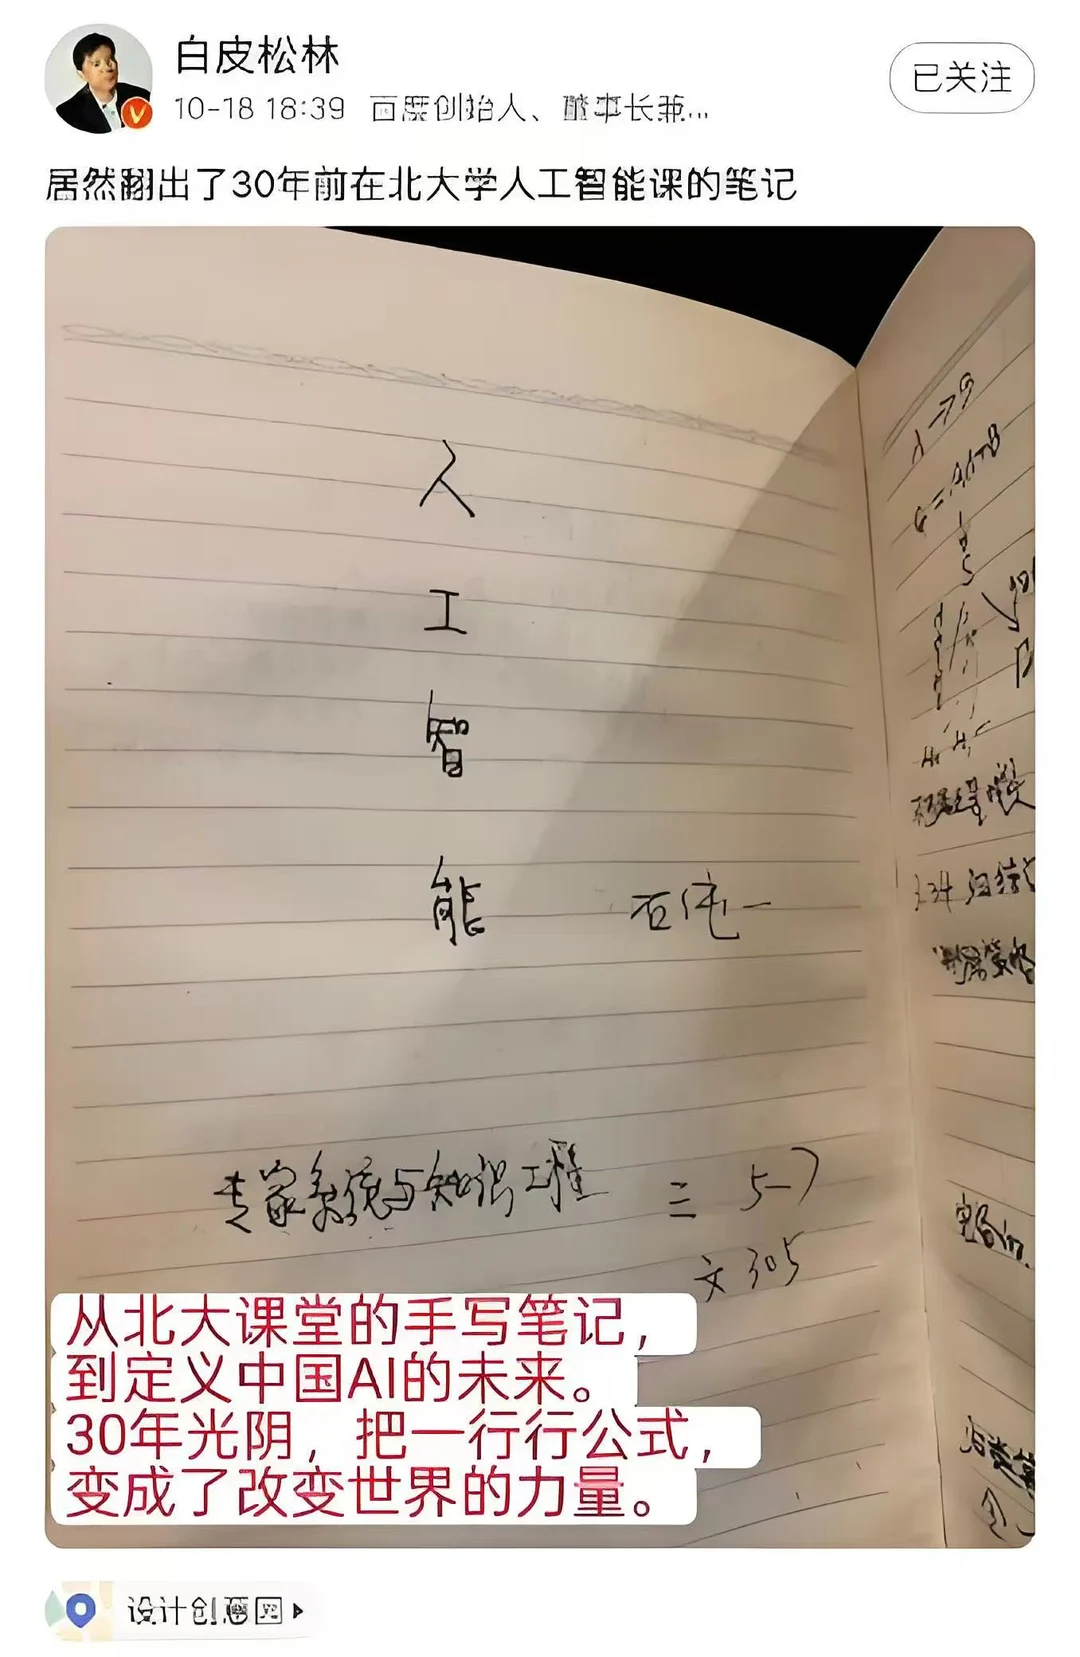 白皮松林
10-18 18:39 百度创始人、董事长兼...
已关注
居然翻出了30年前在北大学人工智能课的笔记
人
工
智
能
石纯一
专家系统与知识工程
三 5-7
文 305
从北大课堂的手写笔记，
到定义中国AI的未来。
30年光阴，把一行行公式，
变成了改变世界的力量。
设计创意园